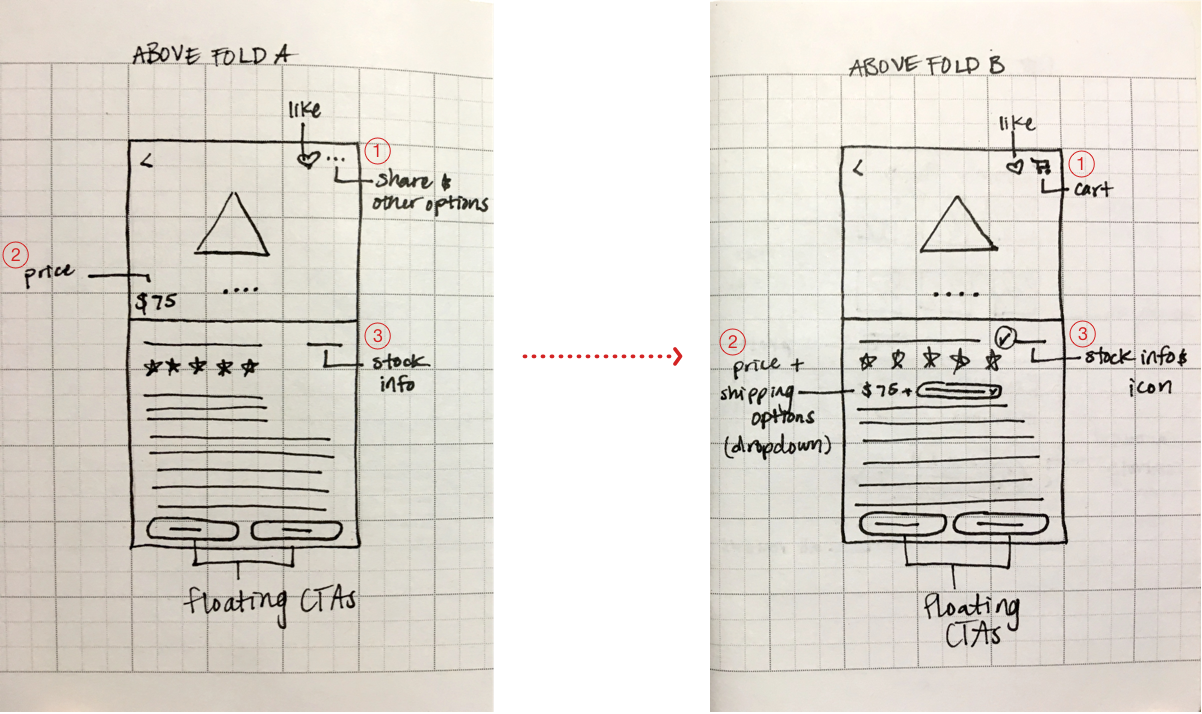 ABOVE FOLD A
like
1
share &
other options
2
price
$75
3
stock
info
floating CTAs
ABOVE FOLD B
like
1
cart
2
price +
shipping
options
(dropdown)
$75 +
3
stock info &
icon
floating
CTAs